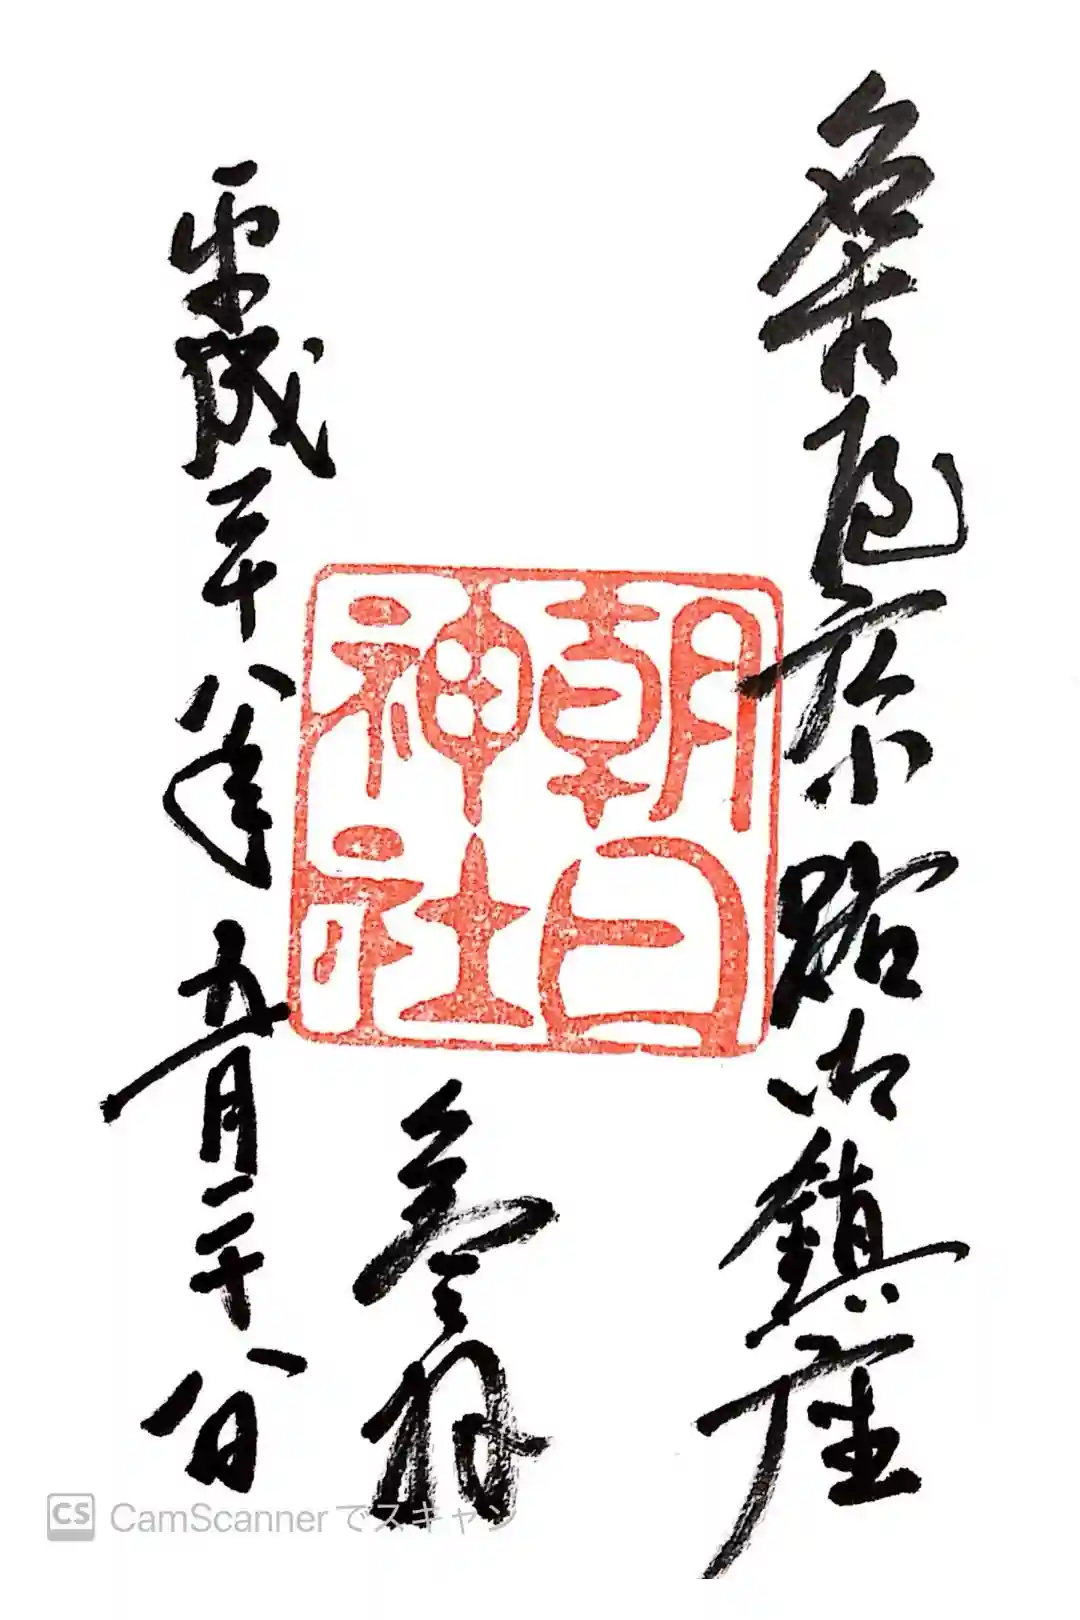 名古屋広小路御鎮座
朝日
神社
参拝
平成二十八年五月二十八日
CS CamScannerでスキャン